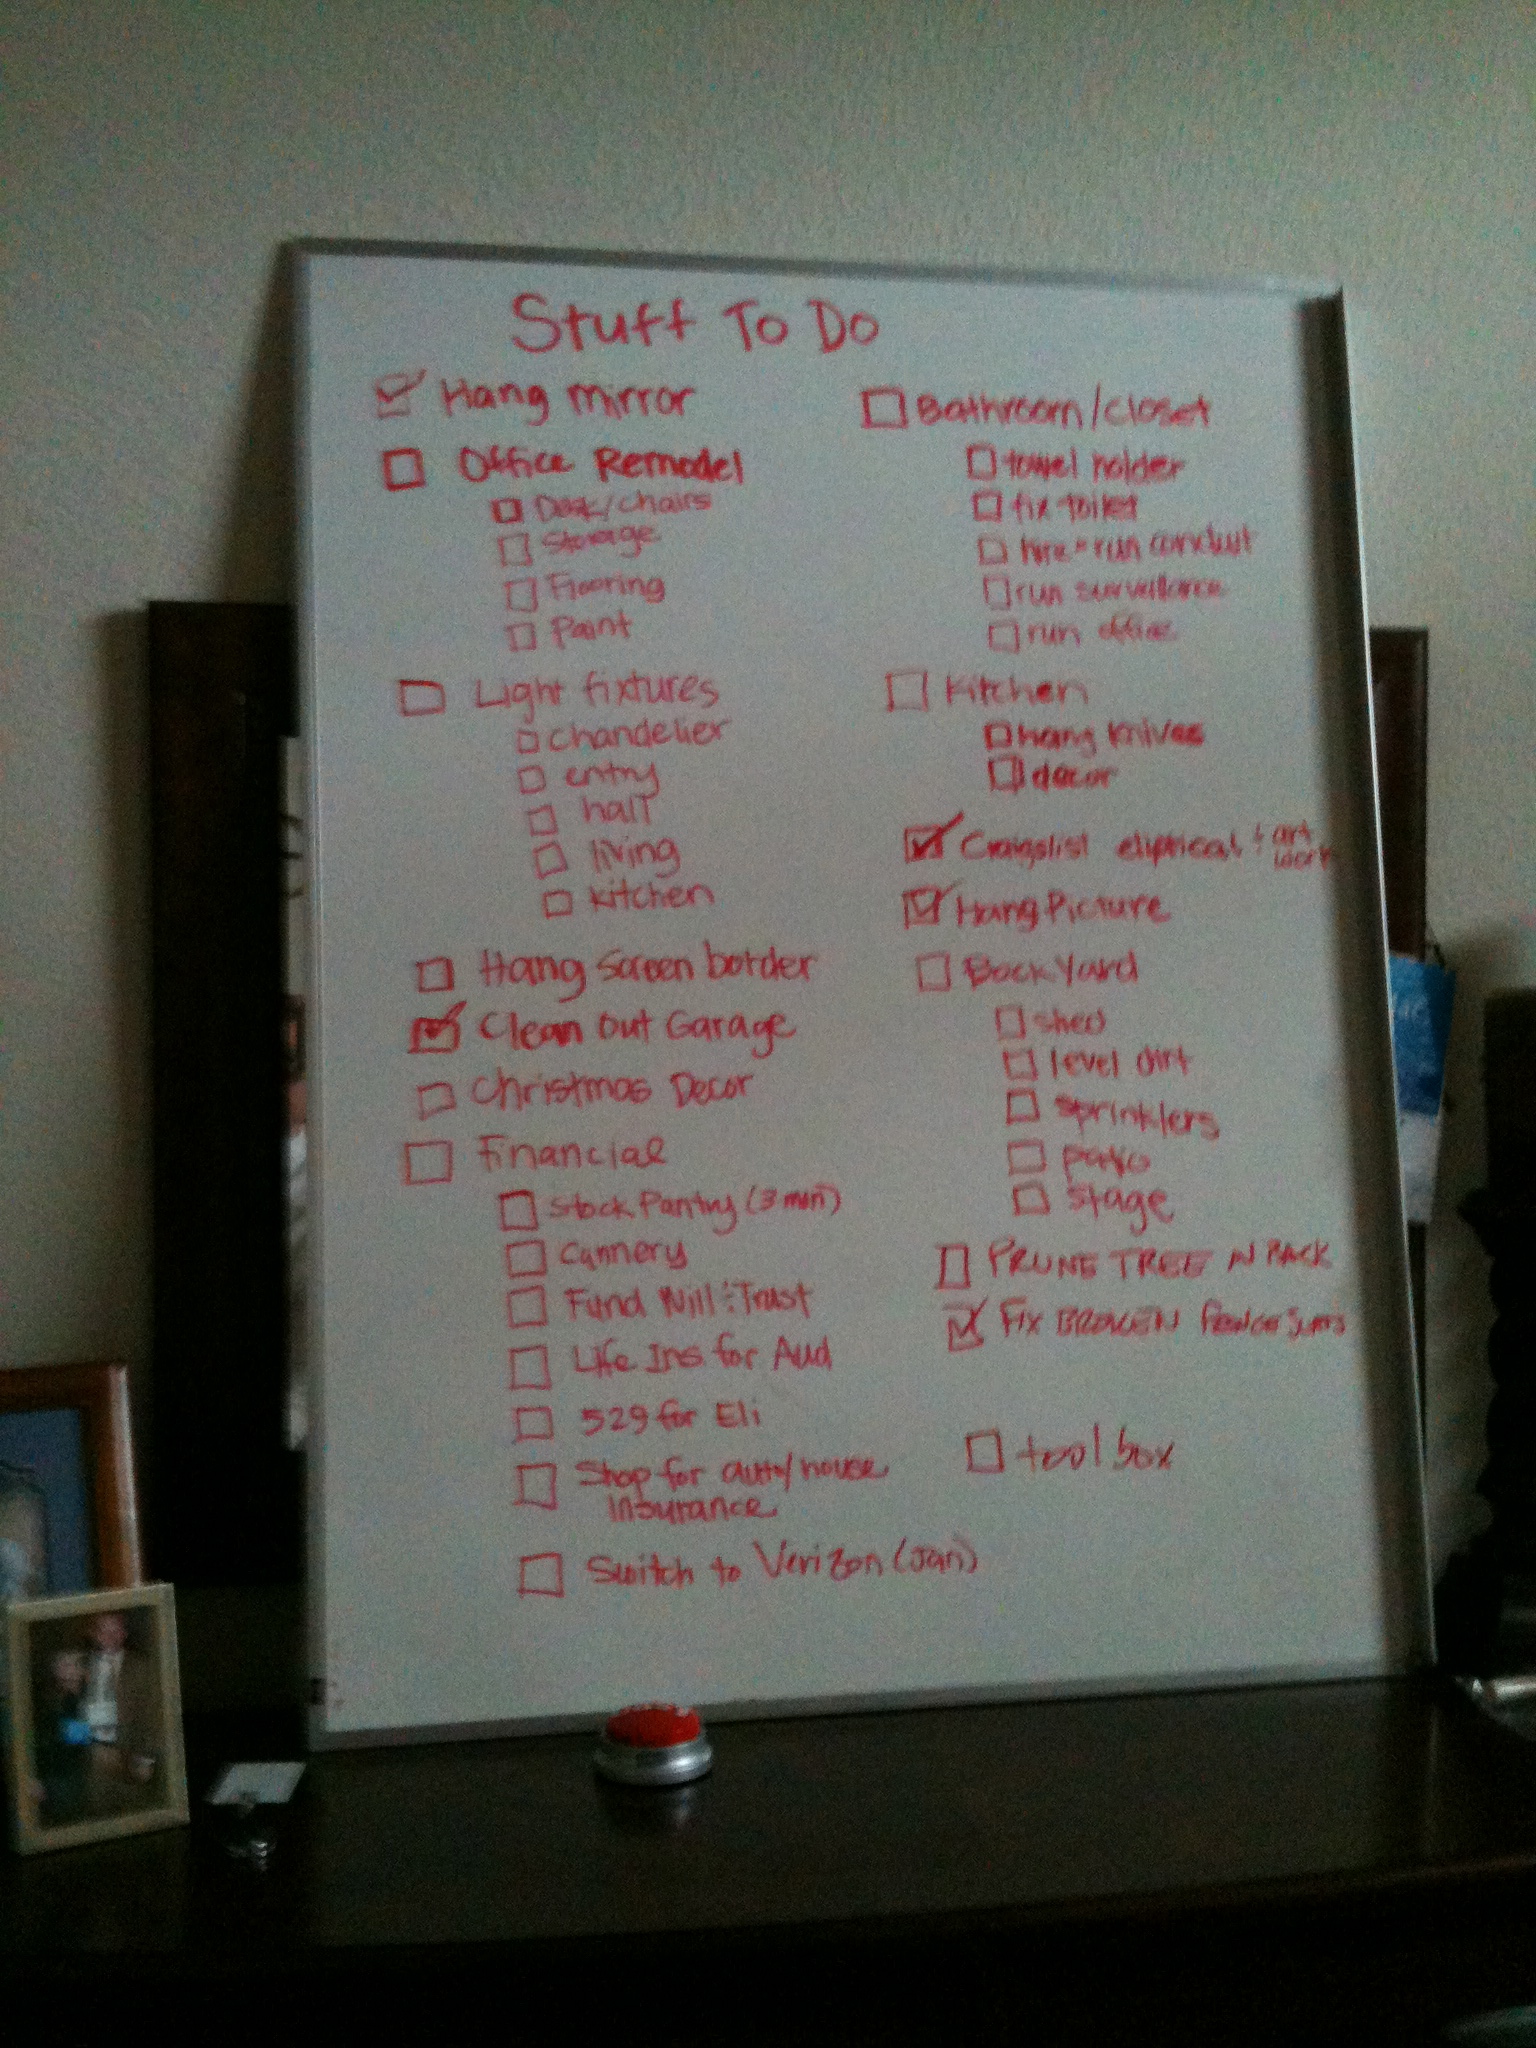 Stuff To Do
Hang mirror
Office Remodel
Desk/chairs
Storage
Flooring
Paint
Light fixtures
chandelier
entry
hall
living
kitchen
Hang Screen border
Clean Out Garage
Christmas Decor
Financial
Stock Pantry (3 mon)
Cannery
Fund Will : Trust
Life Ins for Aud
529 for Eli
Shop for auto/house
Insurance
Switch to Verizon (Jan)
Bathroom/closet
towel holder
fix toilet
run conduit
run surveillance
run office
Kitchen
Hang knives
decor
Craigslist eliptical + art
work
Hang Picture
Back Yard
shed
level dirt
sprinklers
patio
stage
PRUNE TREE IN BACK
FIX BROKEN
tool box